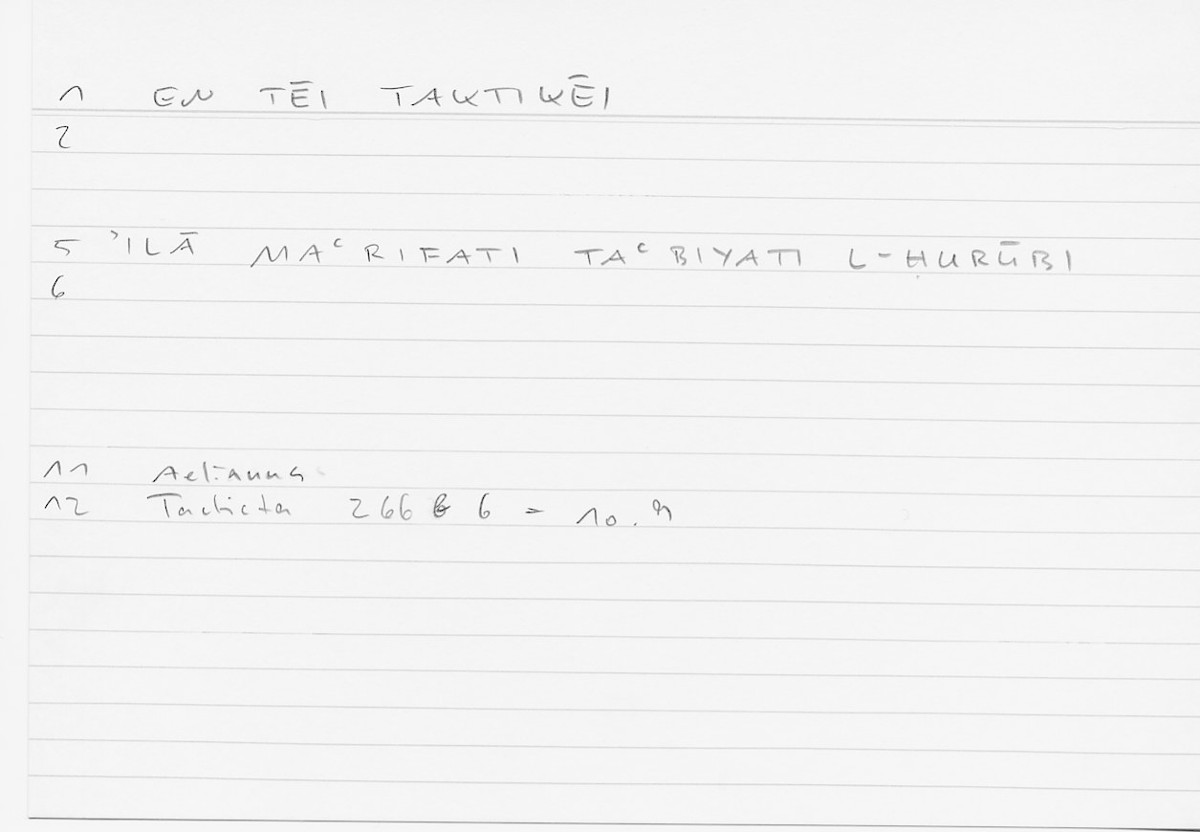 1 EN TĒI TAKTIKĒI
2
5 ʾILĀ MAʿRIFATI TAʿBIYATI L-ḤURŪBI
6
11 Aelianus
12 Tactica 266 6 = 10.